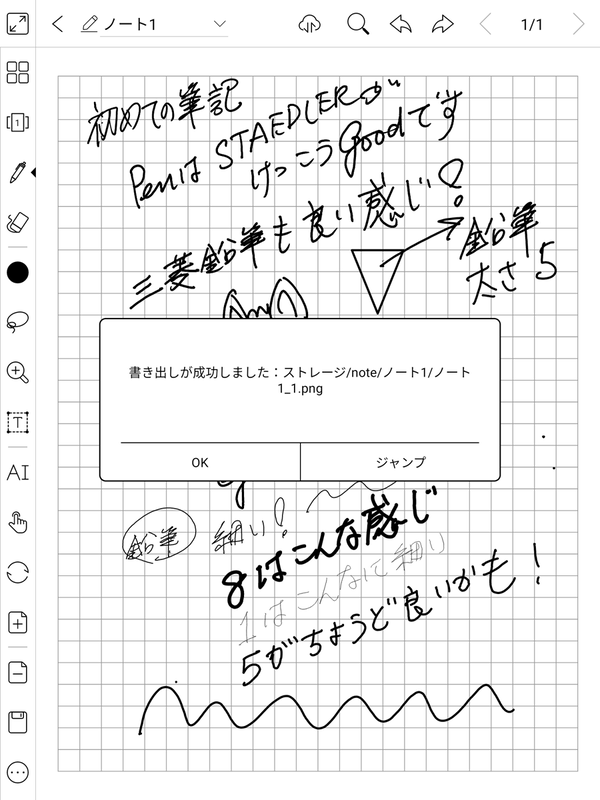 ノート1
1/1
初めての筆記
Penは STAEDLERが
けっこうgoodです
三菱鉛筆も良い感じ!
鉛筆
太さ5
書き出しが成功しました：ストレージ/note/ノート1/ノート
1_1.png
OK
ジャンプ
鉛筆 細い!
8はこんな感じ
1はこんなに細い
5がちょうど良いかも!